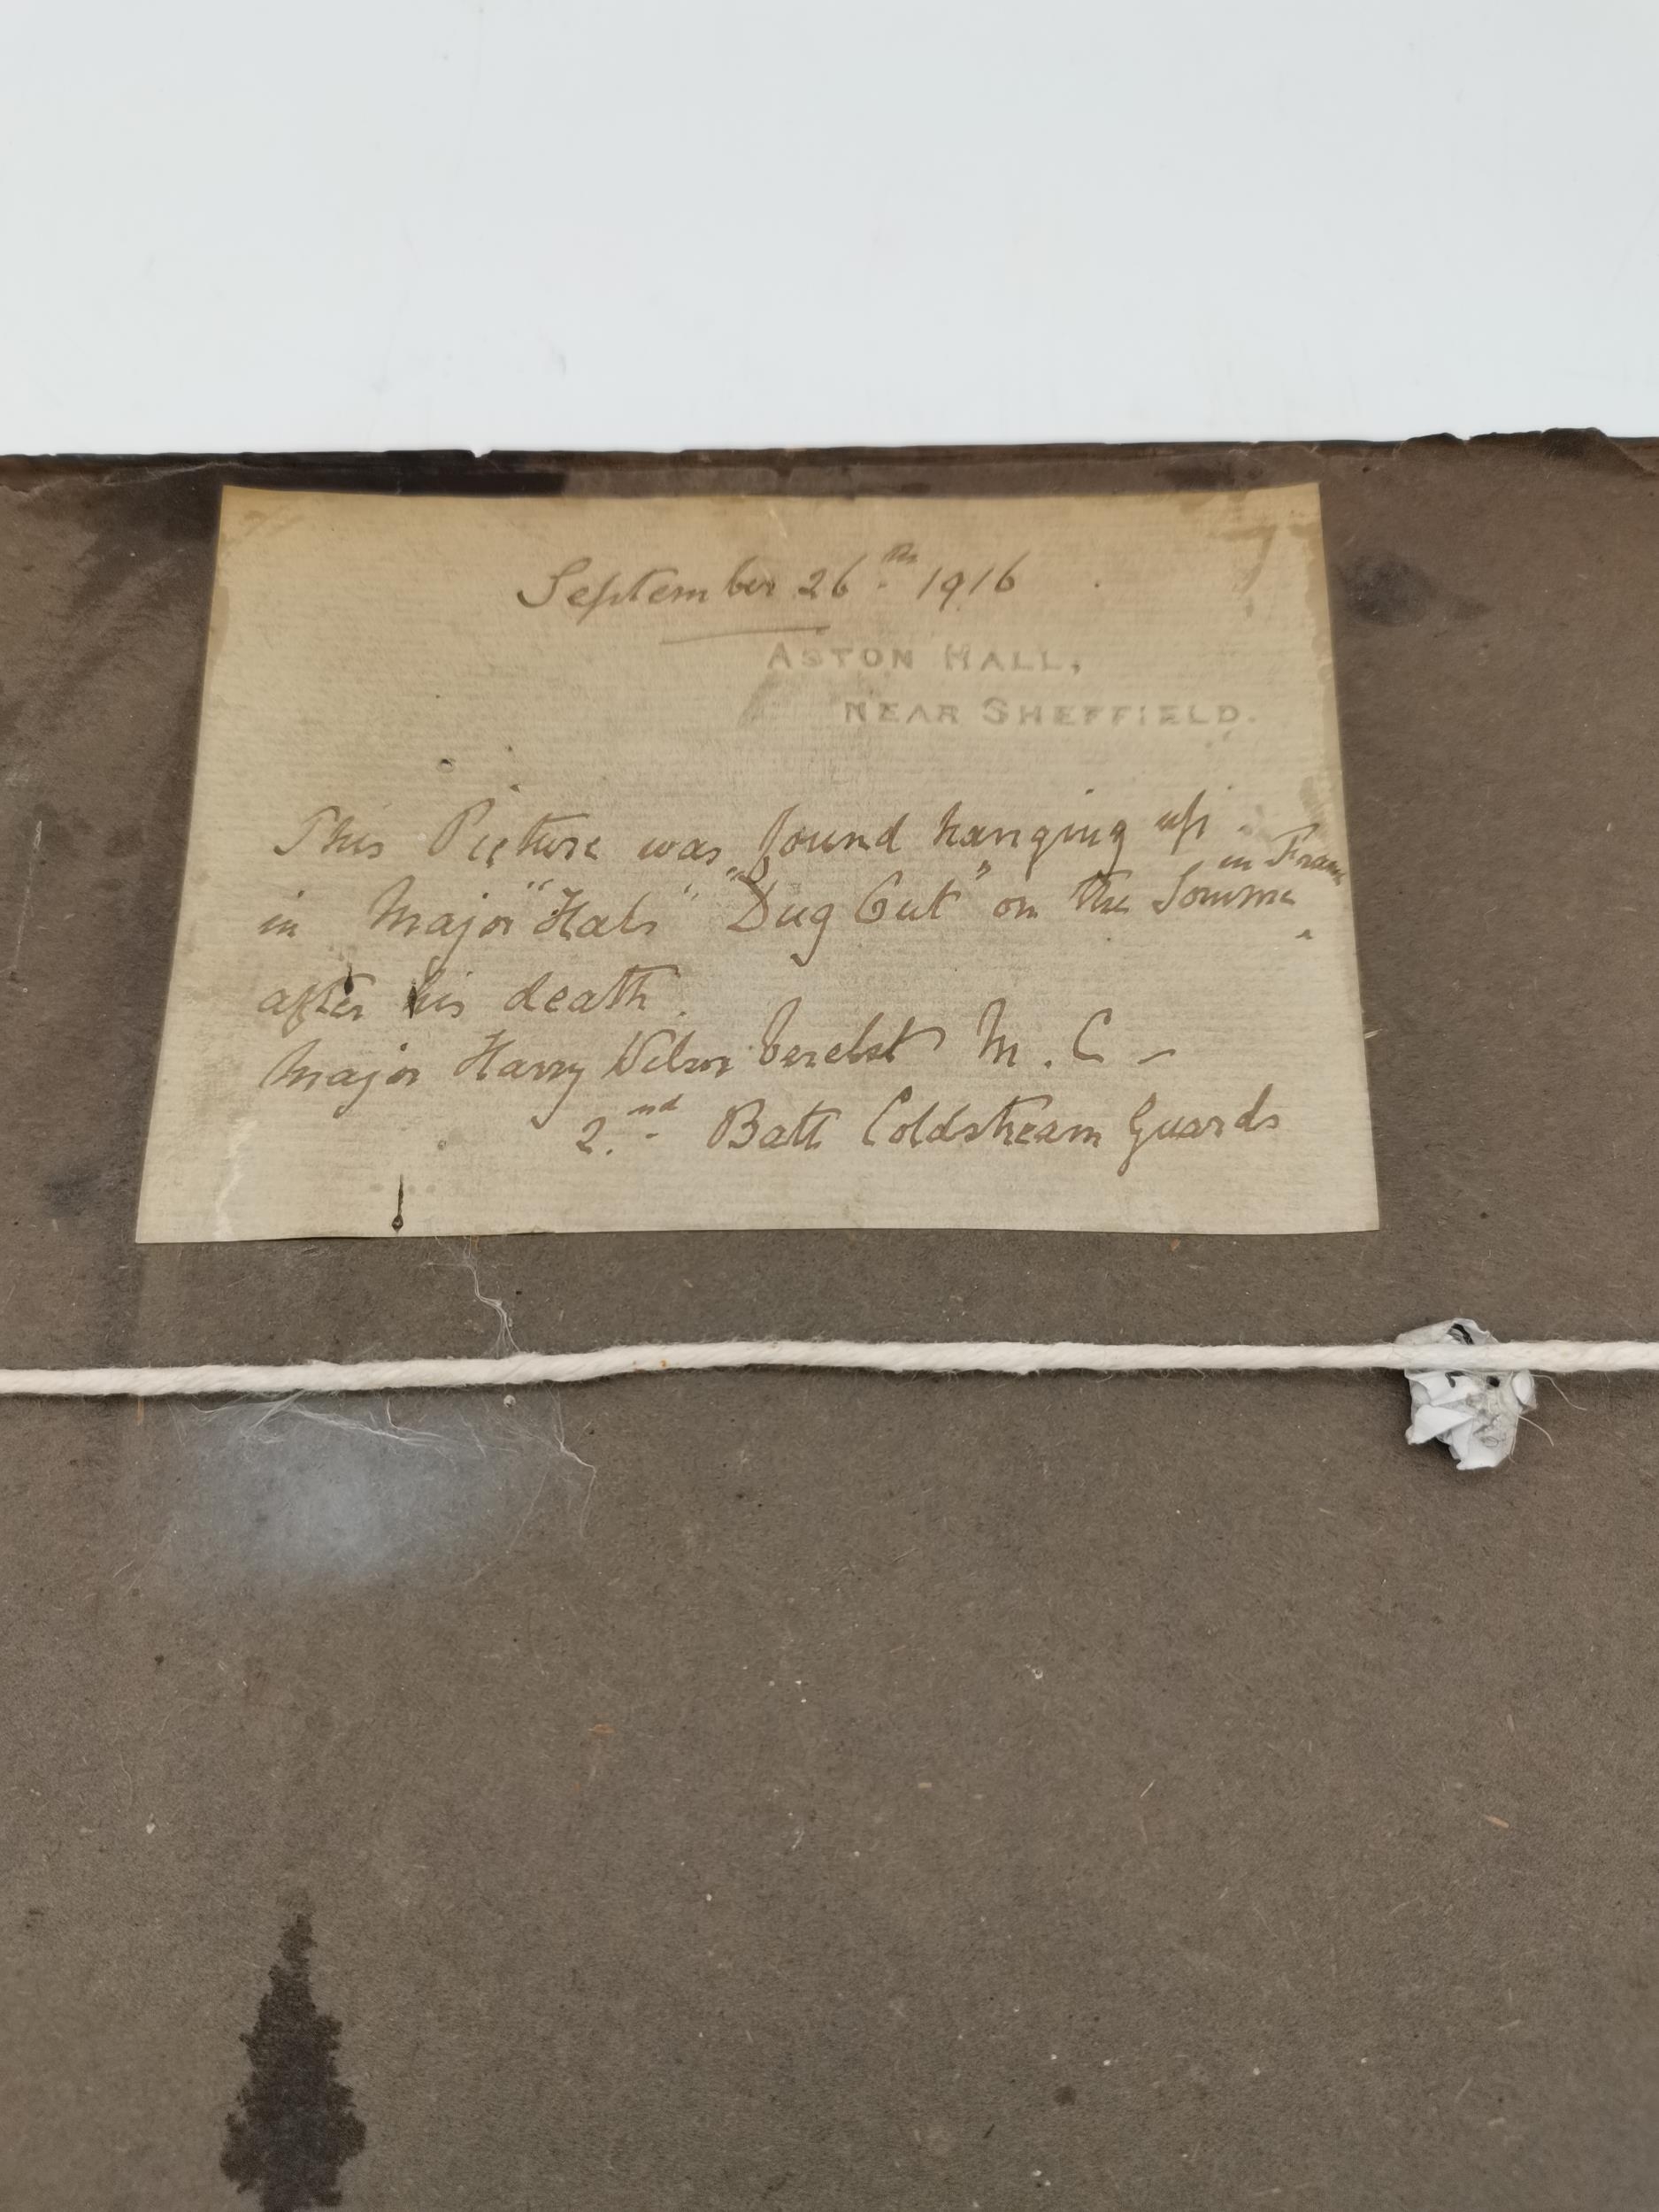 September 26th 1916
ASTON HALL,
NEAR SHEFFIELD.
This Picture was found hanging up
in Major "Hal's" "Dug Out" on the Somme in France
after his death.
Major Harry Wilson Verelst M.C -
2.nd Batt Coldstream Guards